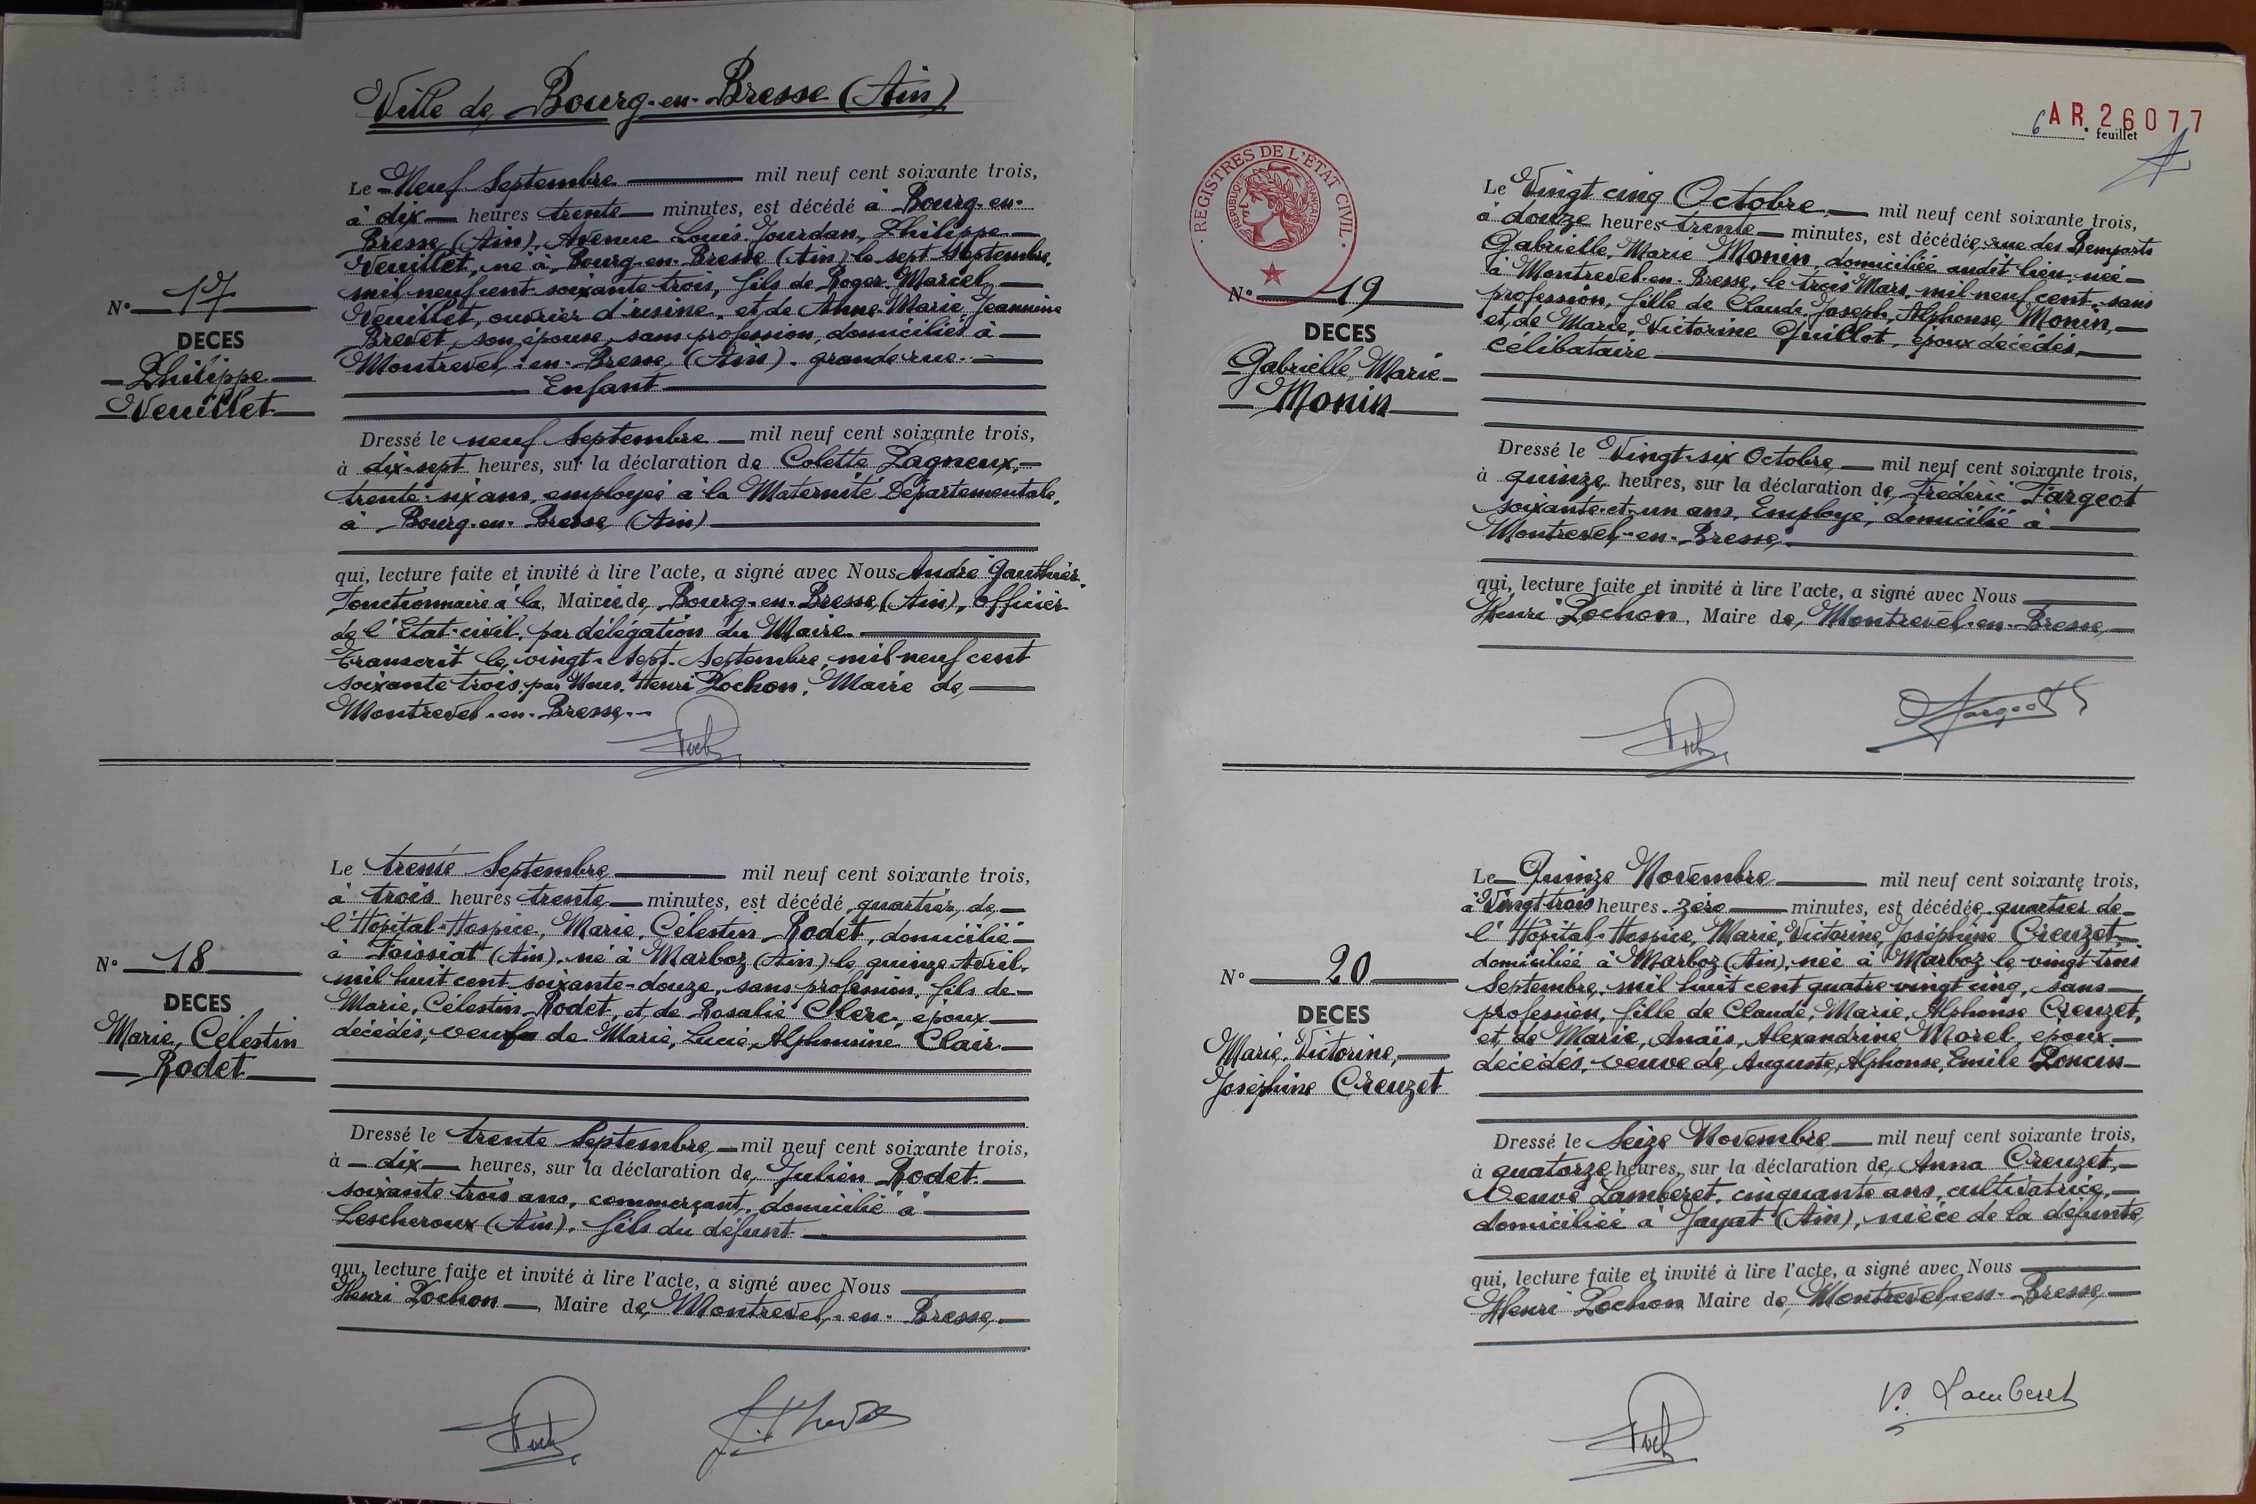 Ville de Bourg-en-Bresse (Ain)
Le Neuf Septembre mil neuf cent soixante trois,
à dix heures trente minutes, est décédé à Bourg-en-
Bresse (Ain), Avenue Louis Jourdan, Philippe
Veuillet, né à Bourg-en-Bresse (Ain) le sept Septembre,
mil neuf cent soixante trois, fils de Roger Marcel
Veuillet, ouvrier d'usine, et de Anne Marie Jeannine
Brevet, son épouse, sans profession, domiciliés à
Montrevel-en-Bresse (Ain), grande rue.
Enfant
N° 17
DECES
Philippe
Veuillet
Dressé le neuf Septembre mil neuf cent soixante trois,
à dix-sept heures, sur la déclaration de Colette Pagneux,
trente-six ans, employée à la Maternité Départementale,
à Bourg-en-Bresse (Ain)
qui, lecture faite et invité à lire l'acte, a signé avec Nous André Gauthier
Fonctionnaire à la Mairie de Bourg-en-Bresse (Ain), officier
de l'Etat-civil, par délégation du Maire.
Transcrit le vingt-sept Septembre, mil neuf cent
soixante trois, par Nous, Henri Pochon, Maire de
Montrevel-en-Bresse.
Le trente Septembre mil neuf cent soixante trois,
à trois heures trente minutes, est décédé quartier de
l'Hôpital-Hospice, Marie, Célestin Rodet, domicilié
à Foissiat (Ain), né à Marboz (Ain) le quinze Avril,
mil huit cent soixante-douze, sans profession, fils de
Marie, Célestin Rodet, et de Rosalie Clerc, époux
décédés, veuf de Marie, Lucie, Alphonsine Clair
N° 18
DECES
Marie, Célestin
Rodet
Dressé le trente Septembre mil neuf cent soixante trois,
à dix heures, sur la déclaration de Julien Rodet
soixante trois ans, commerçant, domicilié à
Lescheroux (Ain), fils du défunt
qui, lecture faite et invité à lire l'acte, a signé avec Nous
Henri Pochon, Maire de Montrevel-en-Bresse,
AR 26077
6e feuillet
REGISTRES DE L'ETAT CIVIL
REPUBLIQUE FRANÇAISE
Le Vingt cinq Octobre mil neuf cent soixante trois,
à douze heures trente minutes, est décédée, rue des Remparts
Gabrielle, Marie Monin domiciliée audit lieu, née
à Montrevel-en-Bresse, le trois Mars, mil neuf cent, sans
profession, fille de Claude, Joseph, Alphonse Monin,
et de Marie, Victorine Guillot, époux décédés,
célibataire
N° 19
DECES
Gabrielle, Marie
Monin
Dressé le Vingt-six Octobre mil neuf cent soixante trois,
à quinze heures, sur la déclaration de Frédéric Fargeot
soixante-et-un ans, Employé, domicilié à
Montrevel-en-Bresse,
qui, lecture faite et invité à lire l'acte, a signé avec Nous
Henri Pochon, Maire de Montrevel-en-Bresse,
Fargeot
Le Quinze Novembre mil neuf cent soixante trois,
à Vingt trois heures zéro minutes, est décédée, quartier de
l'Hôpital-Hospice, Marie, Victorine, Joséphine Creuzet,
domiciliée à Marboz (Ain), née à Marboz le vingt trois
Septembre, mil huit cent quatre vingt cinq, sans
profession, fille de Claude, Marie, Alphonse Creuzet,
et de Marie, Anaïs, Alexandrine Morel, époux
décédés, veuve de Auguste, Alphonse, Emile Poncin
N° 20
DECES
Marie, Victorine,
Joséphine Creuzet
Dressé le Seize Novembre mil neuf cent soixante trois,
à quatorze heures, sur la déclaration de Anna Creuzet,
Veuve Lamberet, cinquante ans, cultivatrice,
domiciliée à Jayat (Ain), nièce de la défunte
qui, lecture faite et invité à lire l'acte, a signé avec Nous
Henri Pochon Maire de Montrevel-en-Bresse
V. Lamberet